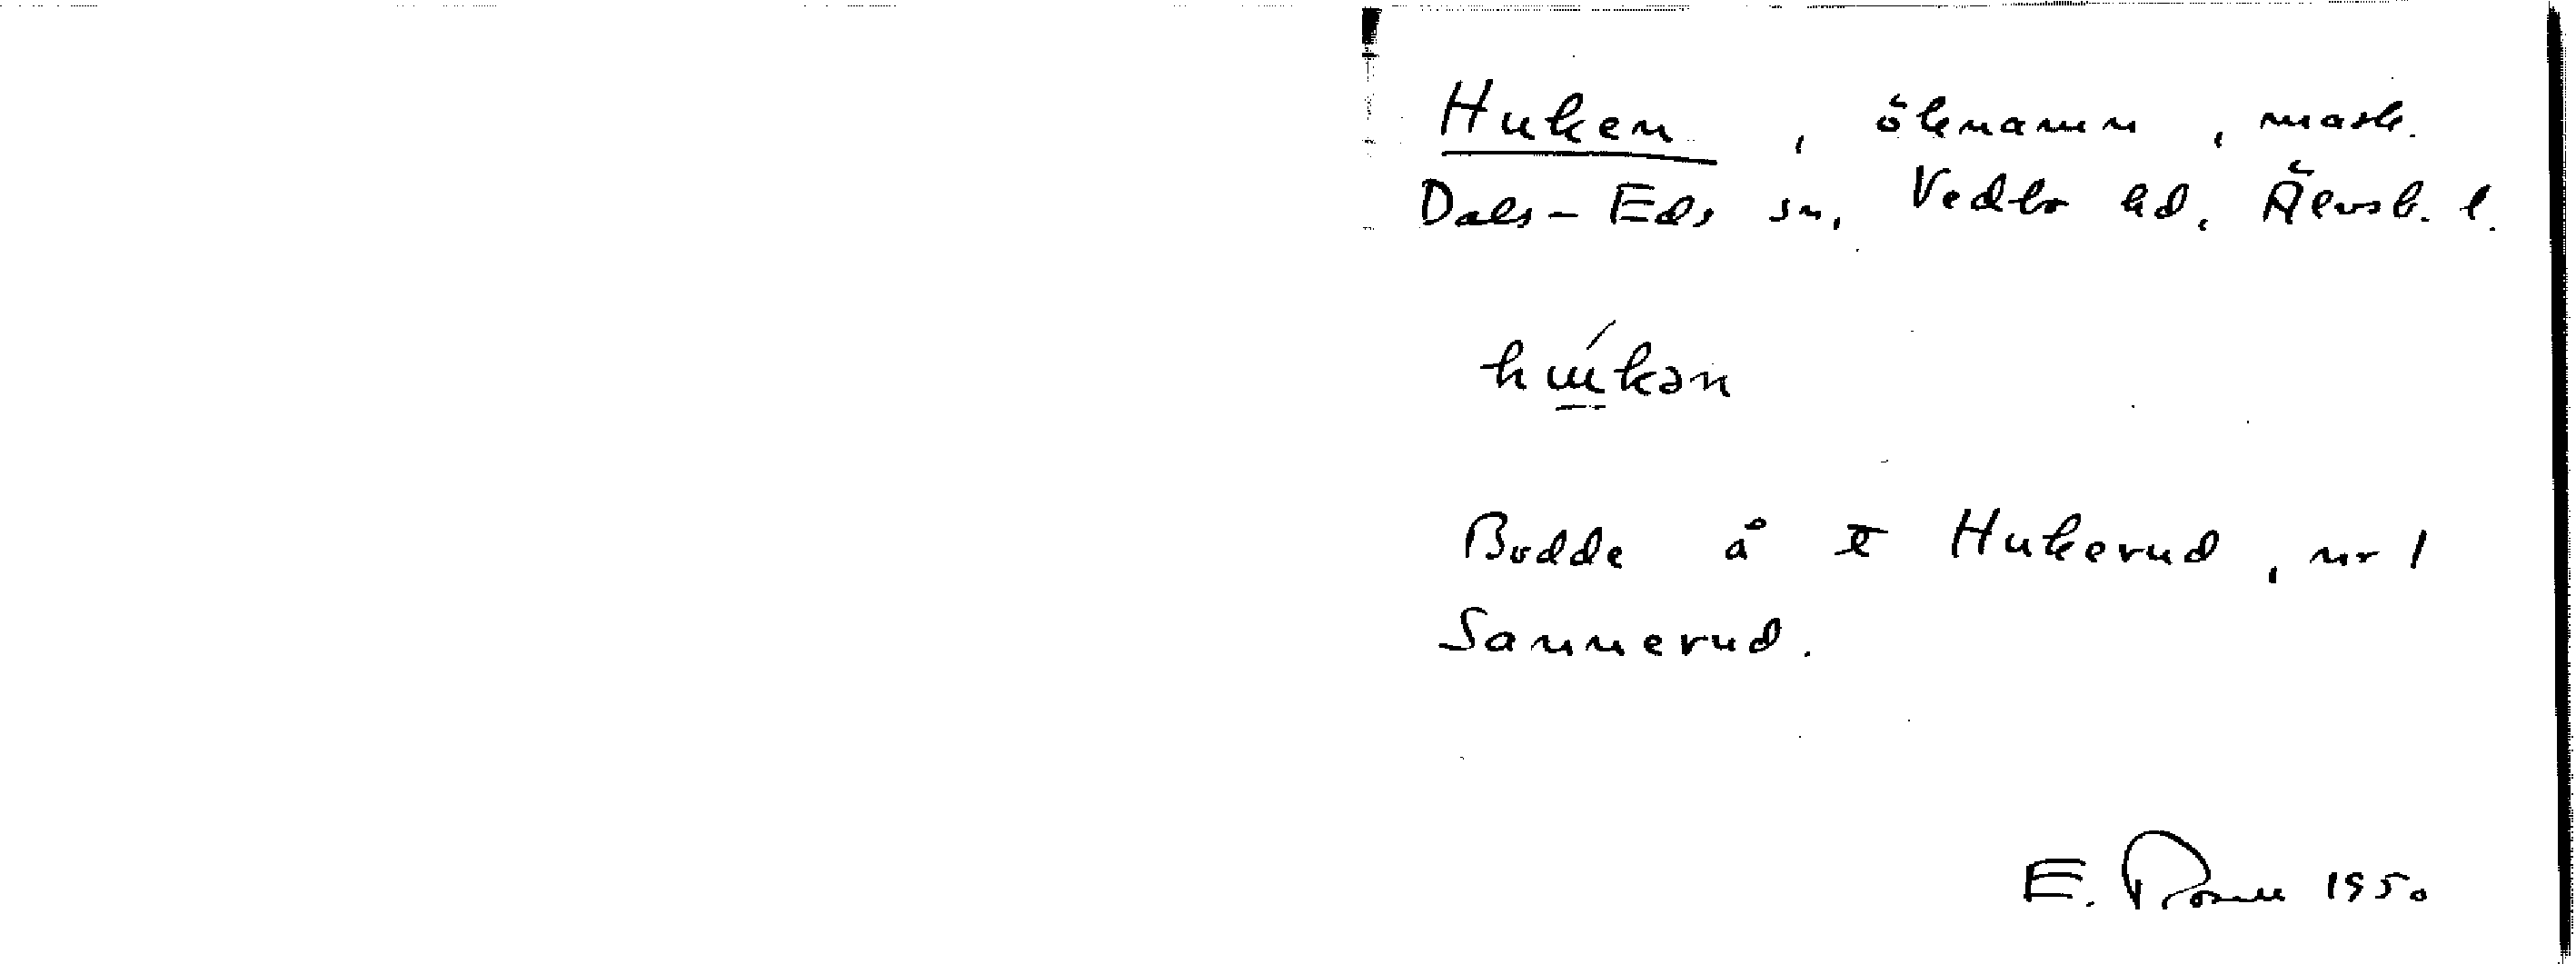 Huken, öknamn, mask.
Dals-Eds sn, Vedbo hd, Älvsb. l.
hɯ́kən
Bodde å t Hukerud, nr 1
Sannerud.
E. 1950